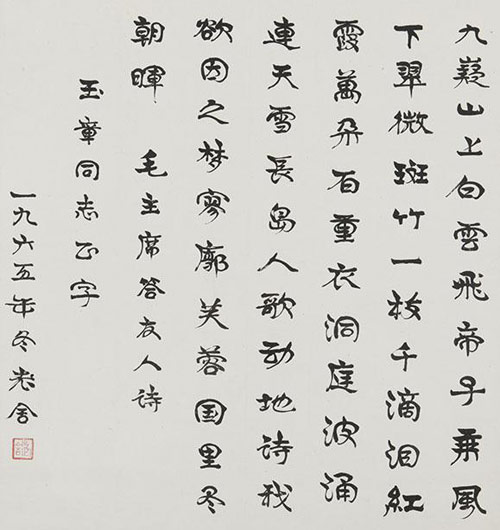 九嶷山上白雲飛帝子乘風
下翠微斑竹一枝千滴泪紅
霞萬朵百重衣洞庭波涌
連天雪長島人歌动地诗我
欲因之梦寥廓芙蓉国里尽
朝暉 毛主席答友人诗
玉章同志正字
一九六五年冬老舍